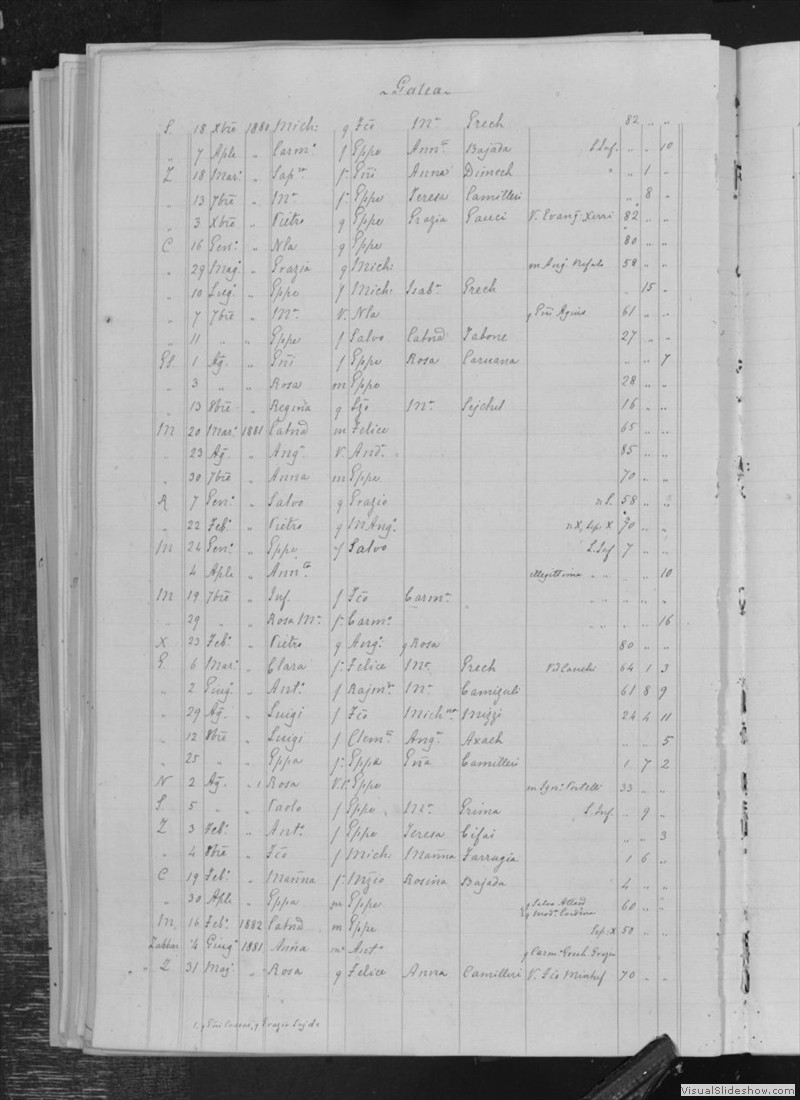 Galea
S. 18 Xbre 1880 Mich: q Fco Ma Grech 82 " "
" 7 Aple " Carma f Gppe Anna Bajada S.Inf. " " 10
Z 18 Mar: " f: Gni Anna Dimech " " 1 "
" 13 7bre " Ma f: Gppe Teresa Camilleri " 8 "
" 3 Xbre " Pietro q Gppe Grazia Gauci V. Evang. Xerri 82 " "
C 16 Gen: " Nla q Gppe 80 " "
" 29 Mag: " Grazia q Mich: m Ang. 58 " "
" 10 Lug. " Gppe f Mich: Isaba Grech " 15 "
" 7 7bre " Ma V. Nla q Gni Agius 61 " "
" 11 " " Gppe f Salvo Catna Tabone 27 " "
1 Ag. " Gni f Gppe Rosa Caruana " " 7
" 3 " " Rosa m Gppe 28 " "
" 13 8bre " Regina q Lzo Ma Sejchel 16 " "
M 20 Mar: 1881 Catna m Felice 65 " "
" 23 Ag. " Anga V. And. 85 " "
" 30 7bre " Anna m Gppe 70 " "
R 7 Gen: " Salvo q Grazio n S. 58 " "
" 22 Feb: " Pietro q M Ang. n X, Sep. X 70 " "
M 24 Gen: " Gppe f Salvo S.Inf 7 " "
4 Aple " Anna illegittima " " " " 10
M 19 7bre " Inf. f Fco Carma " " " " "
" 29 " " Rosa Ma f: Carma " " " " 16
X 23 Feb. " Pietro q Ang. q Rosa 80 " "
G. 6 Mar: " Clara f: Felice Ma Grech 64 1 3
" 2 Giug. " Anto f Rajmdo Ma Camizuli 61 8 9
" 29 Ag. " Luigi f Fco Michna Mizzi 24 4 11
" 12 8bre " Luigi f Clemte Anga Axach " " 5
" 25 " " Gppa f: Gppe Gna Camilleri 1 7 2
N 2 Ag. " Rosa V.V. Gppe m Portelli 33 " "
S. 5 " " Paolo f Gppe Ma Grima S.Inf. " 9 "
Z 3 Feb. " Anto f Gppe Teresa Cifai " " 3
" 4 8bre " Fco f Mich: Marina Farrugia 1 6 "
C 19 Feb: " Marina f: Nzio Rosina Bajada 4 " "
" 30 Aple " Gppa m Gppe q Salvo Attard 60 " "
M. 16 Feb. 1882 Catna m Gppe Sep. X 50 " "
Zabbar 4 Giug. 1881 Anna m Anto q Carm: Grech
" " Z 31 Mag. " Rosa q Felice Anna Camilleri V. Fco 70 " "
VisualSlideshow.com